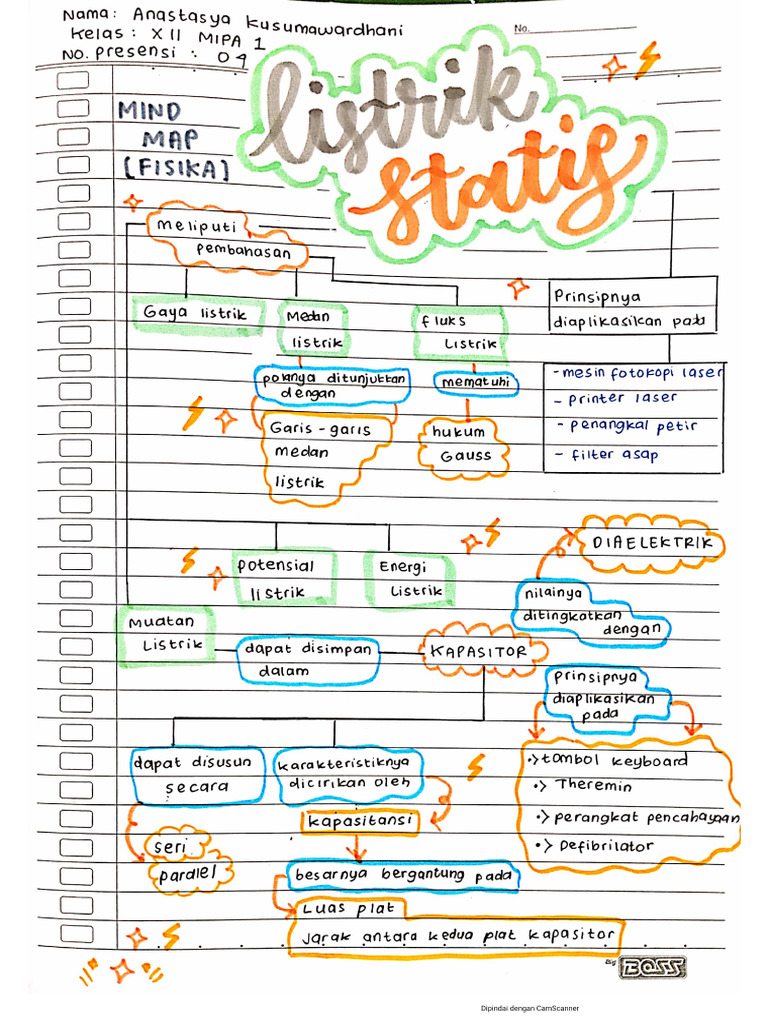 Nama: Anastasya Kusumawardhani
Kelas: XII MIPA 1
No. presensi : 04
No.
listrik
statis
MIND
MAP
[FISIKA]
meliputi
pembahasan
Gaya listrik
Medan
listrik
fluks
Listrik
Prinsipnya
diaplikasikan pada
polanya ditunjukkan
dengan
mematuhi
- mesin fotokopi laser
- printer laser
- penangkal petir
- filter asap
Garis-garis
medan
listrik
hukum
Gauss
potensial
listrik
Energi
Listrik
DIAELEKTRIK
nilainya
ditingkatkan
dengan
Muatan
Listrik
dapat disimpan
dalam
KAPASITOR
prinsipnya
diaplikasikan
pada
dapat disusun
secara
karakteristiknya
dicirikan oleh
•> tombol keyboard
•> Theremin
•> perangkat pencahayaan
•> Defibrilator
kapasitansi
seri
parallel
besarnya bergantung pada
Luas plat
Jarak antara kedua plat kapasitor
Big BOSS
Dipindai dengan CamScanner